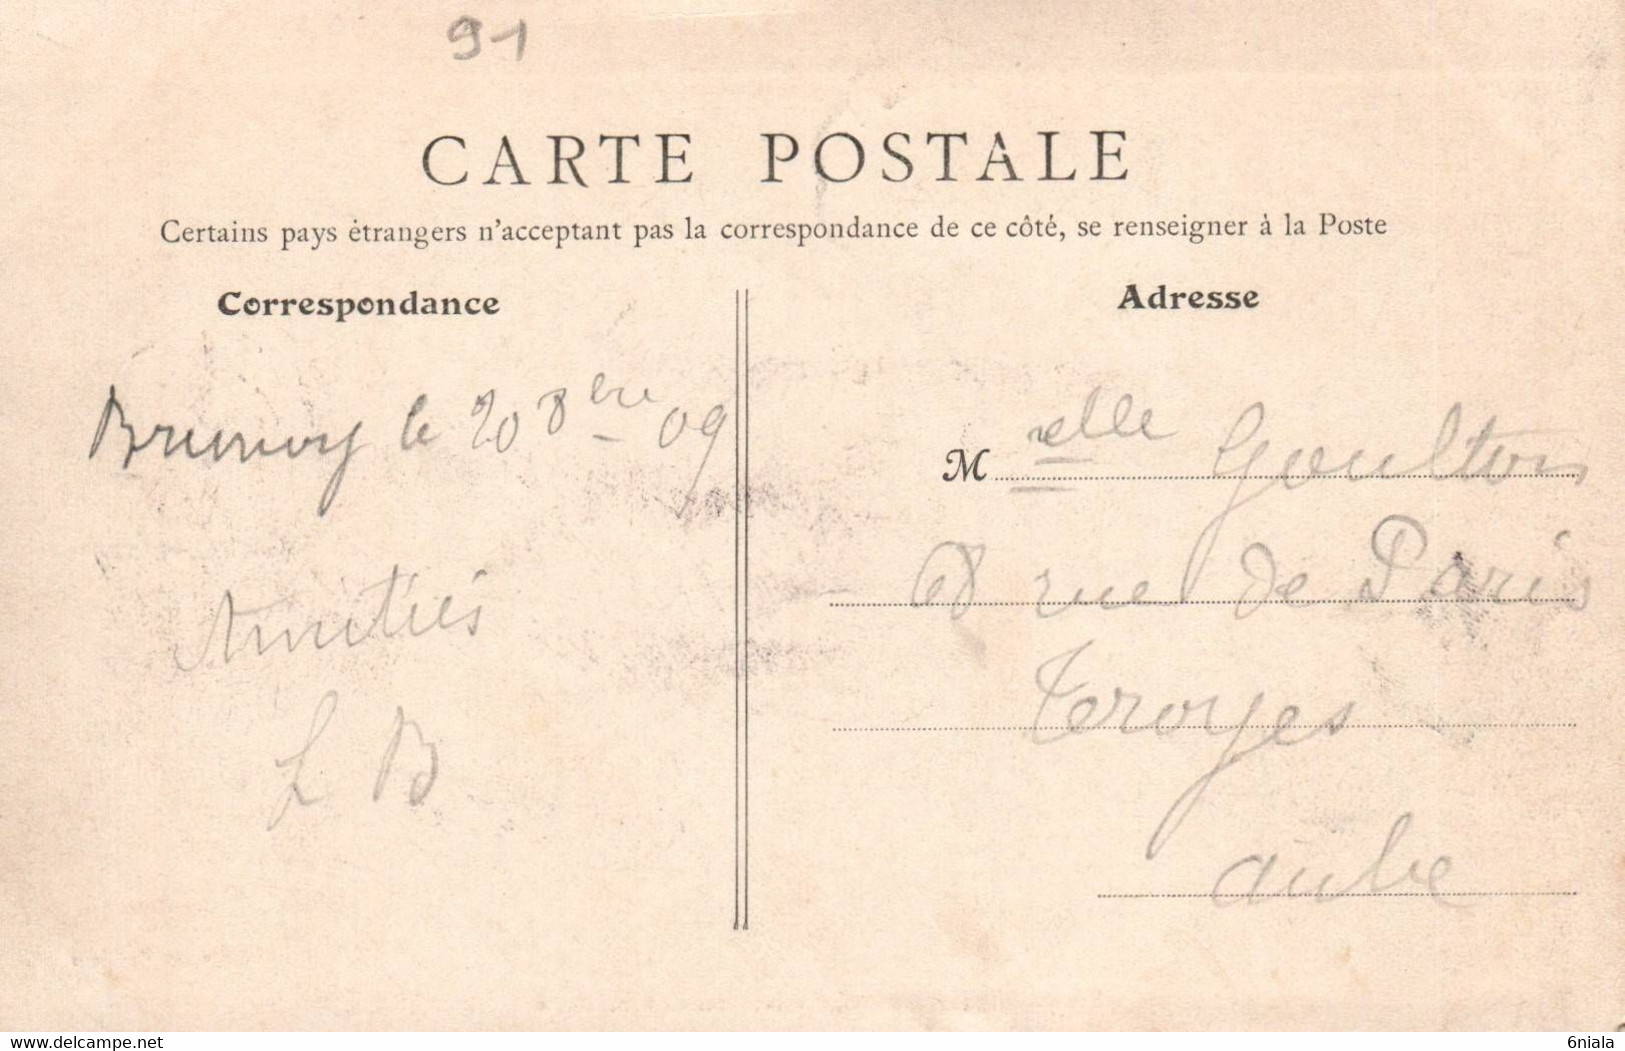 91
CARTE POSTALE
Certains pays étrangers n'acceptant pas la correspondance de ce côté, se renseigner à la Poste
Correspondance
Brunoy le 20 8bre 09
Amitiés
L B
Adresse
Melle Goulton
rue de Paris
Troyes
aube
www.delcampe.net
6niala